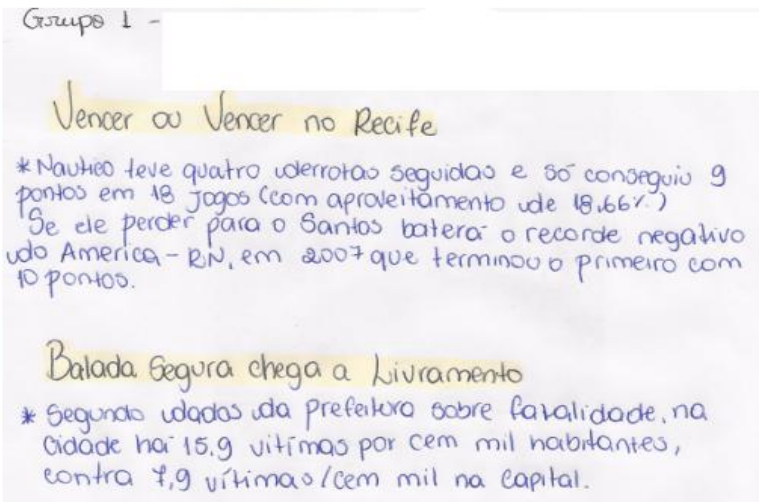 Grupo 1 -
Vencer ou Vencer no Recife
* Nautico teve quatro derrotas seguidas e só conseguiu 9
pontos em 18 jogos (com aproveitamento de 18,66%.)
Se ele perder para o Santos baterá o recorde negativo
do America - RN, em 2007 que terminou o primeiro com
10 pontos.
Balada Segura chega a Livramento
* Segundo dados da prefeitura sobre fatalidade, na
cidade há 15,9 vítimas por cem mil habitantes,
contra 7,9 vítimas/cem mil na capital.